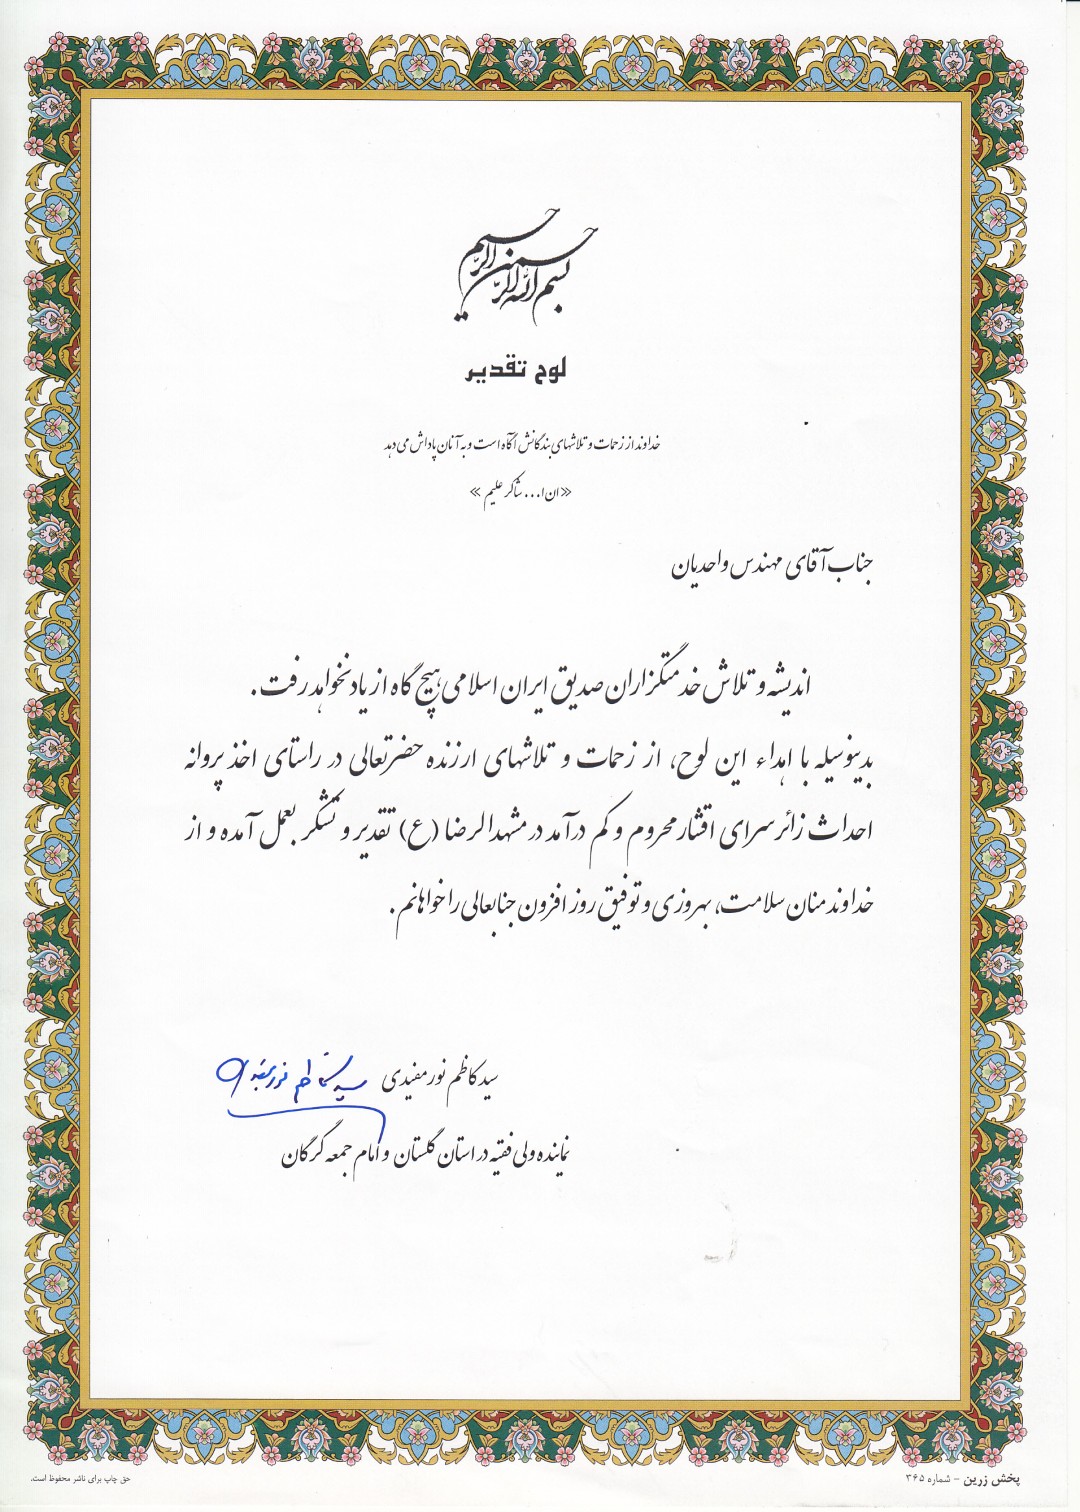 بسم الله الرحمن الرحیم
لوح تقدیر
خداوند از زحمات و تلاشهای بندگانش آگاه است و به آنان پاداش می دهد
«ان ا... شاکر علیم»
جناب آقای مهندس واحدیان
اندیشه و تلاش خدمتگزاران صدیق ایران اسلامی هیچ گاه از یاد نخواهد رفت.
بدینوسیله با اهداء این لوح، از زحمات و تلاشهای ارزنده حضرتعالی در راستای اخذ پروانه
احداث زائرسرای اقشار محروم و کم درآمد در مشهدالرضا (ع) تقدیر و تشکر بعمل آمده و از
خداوند منان سلامت، بهروزی و توفیق روز افزون جنابعالی را خواهانم.
سید کاظم نورمفیدی
سید کاظم نورمفیدی
نماینده ولی فقیه در استان گلستان و امام جمعه گرگان
پخش زرین - شماره ۳۶۵
حق چاپ برای ناشر محفوظ است.